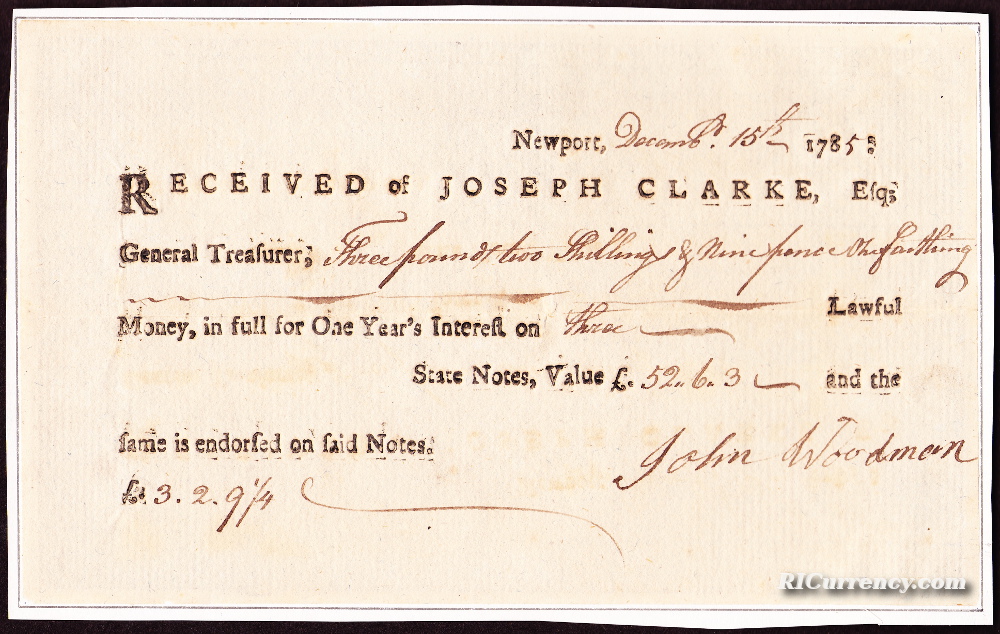 Newport, Decembr. 15th 1785:
RECEIVED of JOSEPH CLARKE, Eſq;
General Treaſurer; Three pounds two Shillings & Nine pence One farthing
Lawful
Money, in full for One Year's Intereſt on three
State Notes, Value £. 52. 6. 3 and the
ſame is endorſed on ſaid Notes.
John Woodman
£. 3. 2. 9 1/4
RICurrency.com